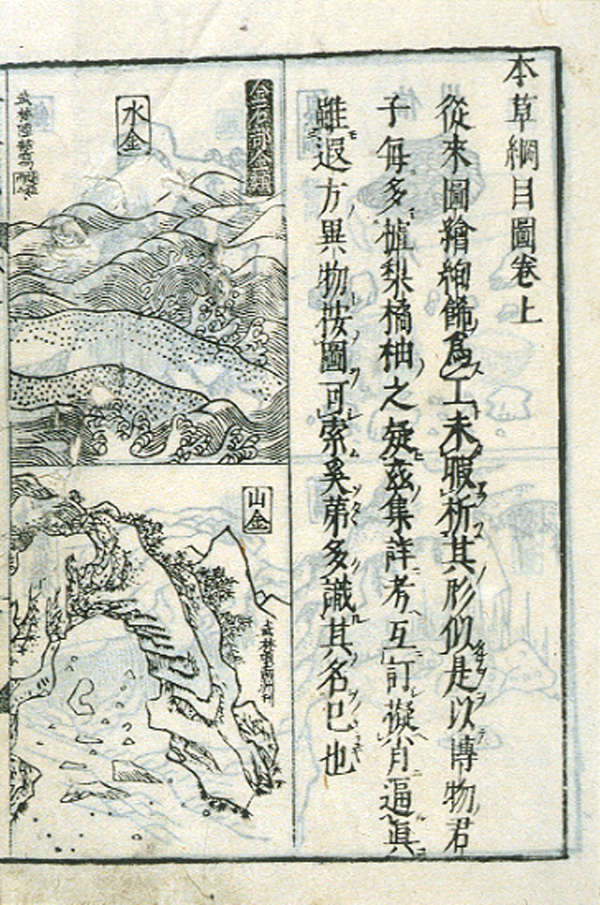 本草綱目圖卷上
從來圖繪絢飾爲工未暇析其形似是以博物君
子每多樝梨橘柚之疑茲集詳考互訂擬肖逼眞
雖遐方異物按圖可索奚第多識其名已也
金石部金類
水金
武林陸喆寫
山金
武林項南洲刊